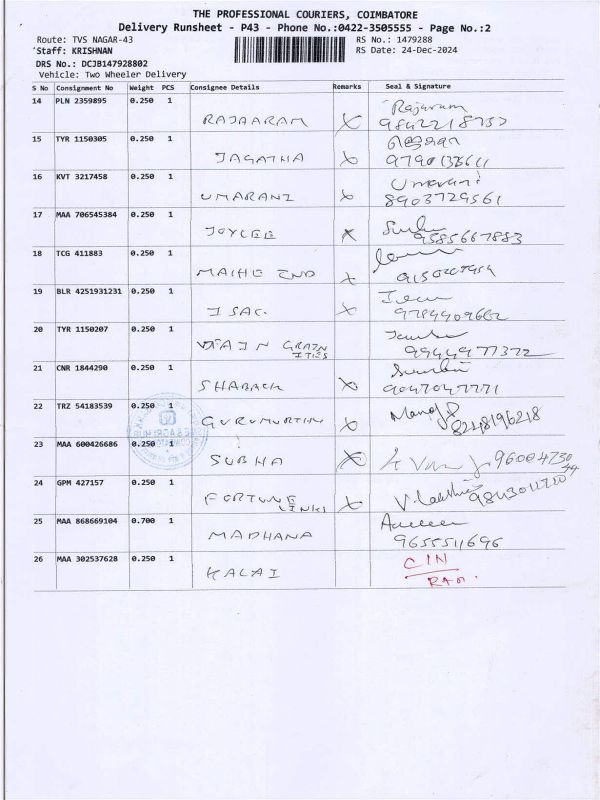 THE PROFESSIONAL COURIERS, COIMBATORE
Delivery Runsheet - P43 - Phone No.:0422-3505555 - Page No.:2
Route: TVS NAGAR-43 RS No.: 1479288
Staff: KRISHNAN RS Date: 24-Dec-2024
DRS No.: DCJB147928802
Vehicle: Two Wheeler Delivery
S No Consignment No Weight PCS Consignee Details Remarks Seal & Signature
14 PLN 2359895 0.250 1 Rajaram
RAJAARAM X
15 TYR 1150305 0.250 1
JAGATHA X
16 KVT 3217458 0.250 1 Umarani
UMARANI X 8903729561
17 MAA 706545384 0.250 1
JOYCEE X 9585667883
18 TCG 411883 0.250 1
X
19 BLR 4251931231 0.250 1
ISAC. X
20 TYR 1150207 0.250 1
9944977372
21 CNR 1844290 0.250 1
X 9047047771
22 TRZ 54183539 0.250 1
GURUMURTHY X 8248196218
23 MAA 600426686 0.250 1
SUBHA X
24 GPM 427157 0.250 1
FORTUNE
LINKS X
25 MAA 868669104 0.700 1
MADHANA 9655511696
26 MAA 302537628 0.250 1 CIN
KALAI